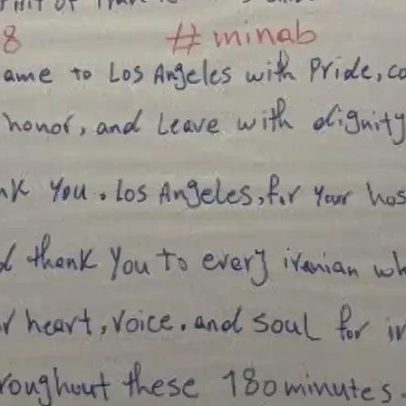 8 #minab
ame to Los Angeles with Pride, co
honor, and Leave with dignity
nk You. Los Angeles, for Your hos
d thank You to every iranian wh
r heart, voice. and soul for ir
roughout these 180 minutes.